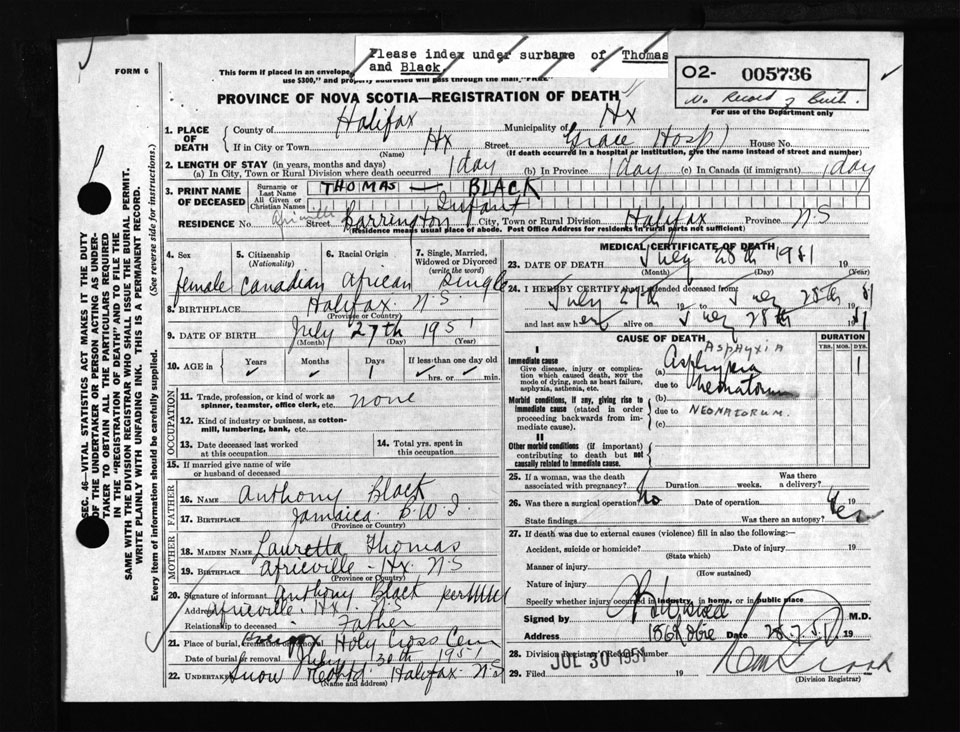 Please index under surname of Thomas
and Black.
FORM 6
This form if placed in an envelope
use $300," and
pass through the mail, "FREE"
02- 005736
No Record of Birth.
For use of the Department only
PROVINCE OF NOVA SCOTIA—REGISTRATION OF DEATH
1. PLACE OF DEATH
County of Halifax Municipality of Hx
If in City or Town Hx Street Grace Hosp) House No.
(Name) (If death occurred in a hospital or institution, give the name instead of street and number)
2. LENGTH OF STAY (in years, months and days)
(a) In City, Town or Rural Division where death occurred 1 day (b) In Province 1 day (c) In Canada (if immigrant) 1 day
3. PRINT NAME OF DECEASED
Surname or Last Name THOMAS — BLACK
All Given or Christian Names Infant
RESIDENCE No. Street Barrington City, Town or Rural Division Halifax Province N.S
(Residence means usual place of abode. Post Office Address for residents in rural parts not sufficient)
4. Sex female
5. Citizenship (Nationality) Canadian
6. Racial Origin African
7. Single, Married, Widowed or Divorced (write the word) Single
8. BIRTHPLACE Halifax. N.S.
(Province or Country)
9. DATE OF BIRTH July 27th 1951
(Month) (Day) (Year)
10. AGE in Years ✓ Months ✓ Days 1 If less than one day old ✓ hrs. or ✓ min.
OCCUPATION
11. Trade, profession, or kind of work as spinner, teamster, office clerk, etc. none
12. Kind of industry or business, as cotton-mill, lumbering, bank, etc.
13. Date deceased last worked at this occupation
14. Total yrs. spent in this occupation
15. If married give name of wife or husband of deceased
FATHER
16. NAME Anthony Black
17. BIRTHPLACE Jamaica B.W.I.
(Province or Country)
MOTHER
18. MAIDEN NAME Lauretta Thomas
19. BIRTHPLACE Africville - Hx. N.S
(Province or Country)
20. Signature of informant Anthony Black per
Address Africville. Hx). N.S
Relationship to deceased Father
21. Place of burial, cremation or removal Holy Cross Cem
Date of burial or removal July 30th 1951
22. Undertaker Snow Halifax N-S
(Name and address)
MEDICAL CERTIFICATE OF DEATH
23. DATE OF DEATH July 28th 1951 19
(Month) (Day) (Year)
24. I HEREBY CERTIFY that I attended deceased from:
July 27th 19 to July 28th 1951
and last saw her alive on July 28th 1951
CAUSE OF DEATH
DURATION
YRS. MOS. DYS.
I
Immediate cause
Give disease, injury or complication which caused death, not the mode of dying, such as heart failure, asphyxia, asthenia, etc.
ASPHYXIA
(a) Asphyxia 1
due to neonatorum
Morbid conditions, if any, giving rise to immediate cause (stated in order proceeding backwards from immediate cause).
(b)
due to NEONATORUM.
(c)
II
Other morbid conditions (if important) contributing to death but not causally related to immediate cause.
25. If a woman, was the death associated with pregnancy? Duration weeks. Was there a delivery?
26. Was there a surgical operation? No Date of operation 19
State findings Was there an autopsy? Yes
27. If death was due to external causes (violence) fill in also the following:—
Accident, suicide or homicide? Date of injury 19
(State which)
Manner of injury
(How sustained)
Nature of injury
Specify whether injury occurred in industry, in home, or in public place
Signed by M.D.
Address 156 Robie Date 28.7.51 19
28. Division Registrar's Record Number
JUL 30 1951
29. Filed 19
(Division Registrar)
SEC. 46—VITAL STATISTICS ACT MAKES IT THE DUTY
OF THE UNDERTAKER OR PERSON ACTING AS UNDER-
TAKER TO OBTAIN ALL THE PARTICULARS REQUIRED
IN THE "REGISTRATION OF DEATH" AND TO FILE THE
SAME WITH THE DIVISION REGISTRAR WHO SHALL ISSUE THE BURIAL PERMIT.
WRITE PLAINLY WITH UNFADING INK. THIS IS A PERMANENT RECORD.
Every item of information should be carefully supplied. (See reverse side for instructions.)